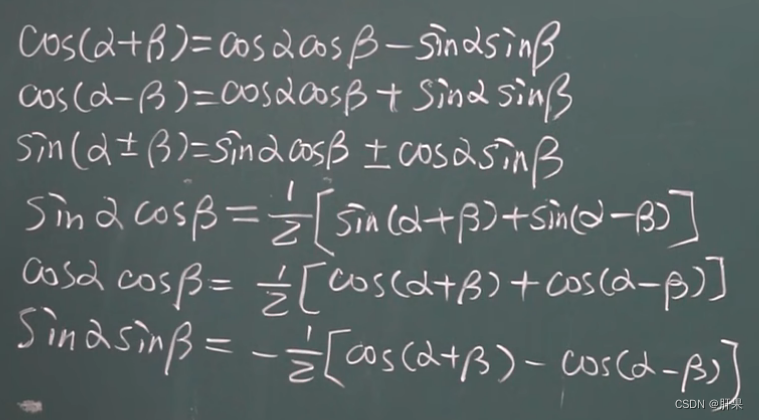 cos(α+β)=cosαcosβ-sinαsinβ
cos(α-β)=cosαcosβ+sinαsinβ
sin(α±β)=sinαcosβ±cosαsinβ
sinαcosβ=1/2[sin(α+β)+sin(α-β)]
cosαcosβ=1/2[cos(α+β)+cos(α-β)]
sinαsinβ=-1/2[cos(α+β)-cos(α-β)]
CSDN @肝果